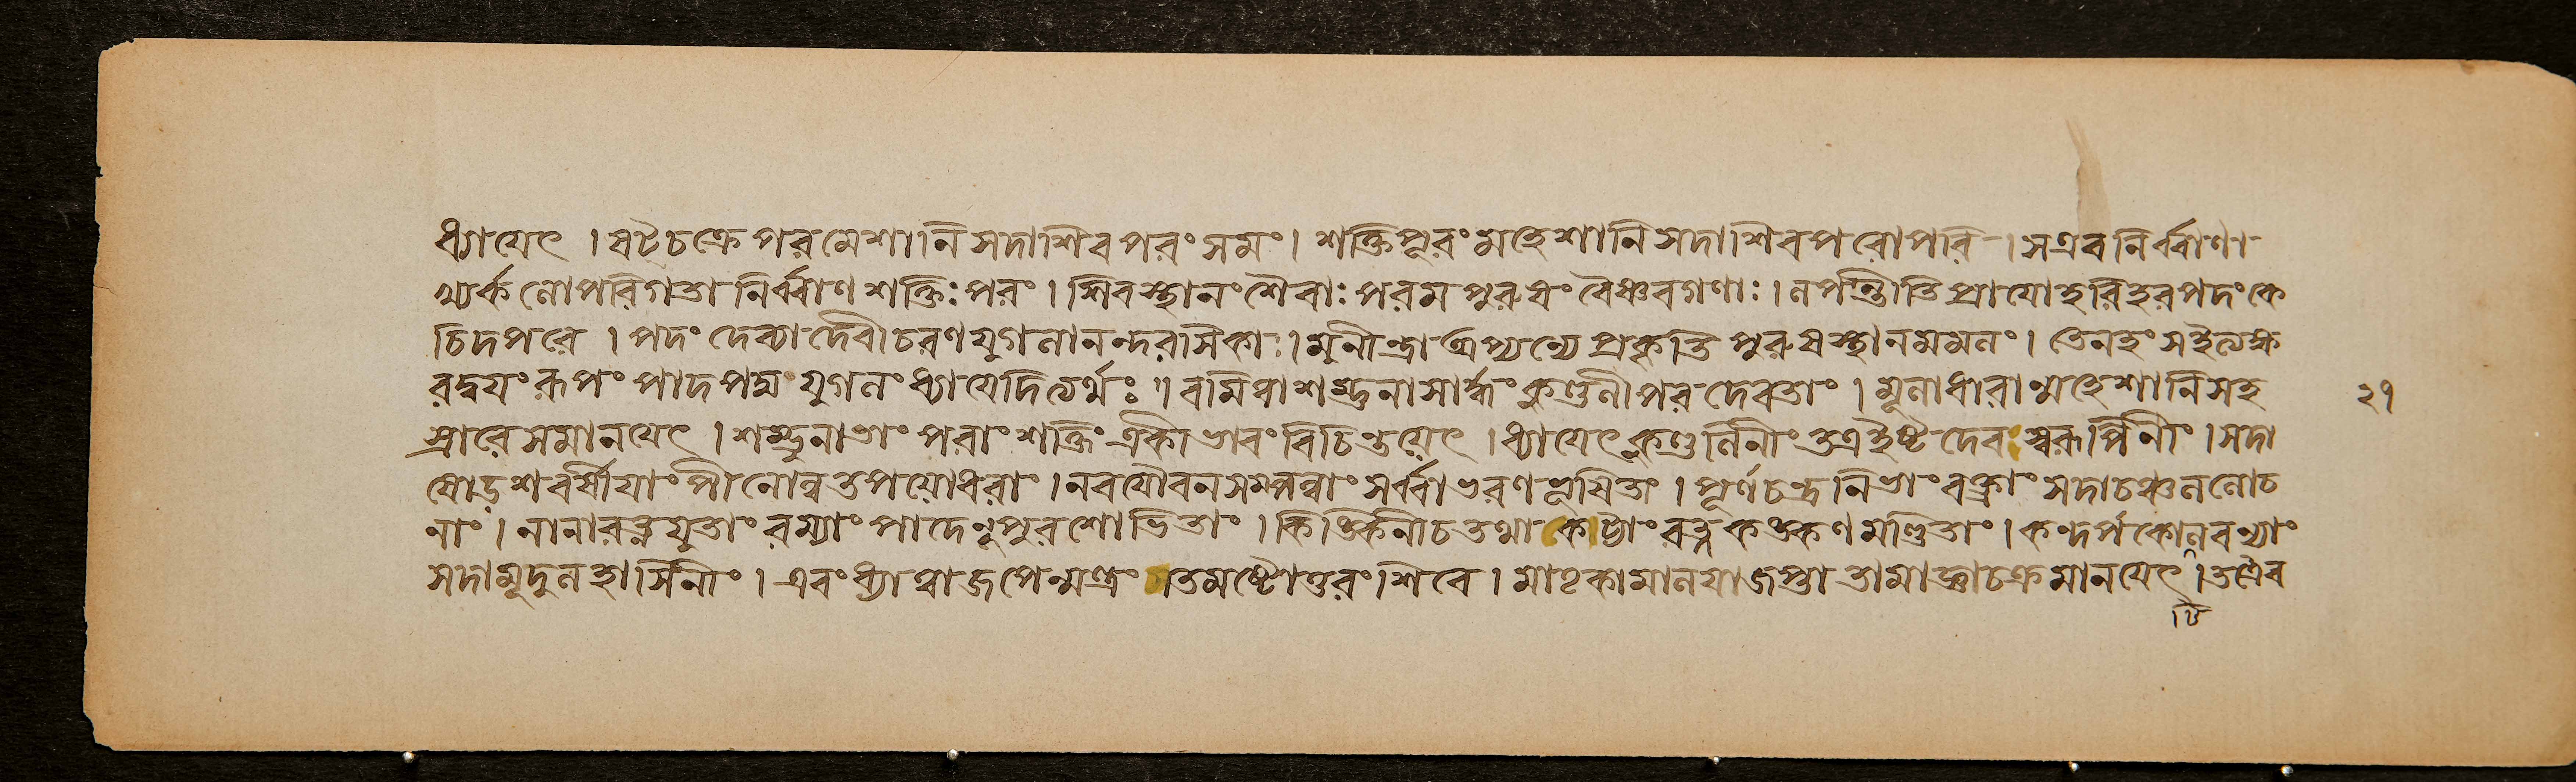 ধ্যায়েৎ । ষটৈচক্রে পরমেশানি সদাশিবপরং সমং । শক্তিপূরং মহেশানি সদাশিবপরোপরি । স এব নির্ব্বাণা
খ্যর্ক লোপরিগতা নির্ব্বাণশক্তিঃ পরং । শিবস্থানং শৈবাঃ পরমপুরুষং বৈষ্ণবগণাঃ । লপন্তীতি প্রায়ো হরিহরপদং কে
চিদপরে । পদং দেব্যা দেবীচরণযুগলানন্দরসিকাঃ । মুনীন্দ্রা অপ্যন্যে প্রকৃতিপুরুষস্থানমমলং । তেনহং সইত্যক্ষ
রদ্বয়ং রূপং পাদপদ্মযুগলং ধ্যায়েদিত্যর্থঃ ॥ বমিত্বা শম্ভুনা সার্দ্ধং কুণ্ডলীপরদেবতাং । মূলাধারান্মহেশানি সহ ২১
স্রারে সমানয়েৎ । শম্ভুনাতাং পরাং শক্তিং একীভাবং বিচিন্তয়েৎ । ধ্যায়েৎ কুণ্ডলিনীং তএ ইষ্টদেবস্বরূপিনীং । সদা
ষোড়শবর্সীয়াং পীনোন্নতপয়োধরাং । নবযৌবনসম্পন্নাং সর্ব্বাভরণভূসিতাং । পূর্ণচন্দ্রনিভাং বক্ত্রাং সদা চঞ্চললোচ
নাং । নানারত্নযুতাং রম্যাং পাদে নূপুরশোভিতাং । কিঙ্কিনী চ তথা কট্যাং রত্নকঙ্কণমণ্ডিতাং । কন্দর্পকোটিলবণ্যাং
সদা মৃদুলহাসিনীং । এবং ধ্যাত্বা জপেন্মন্ত্রং শতমষ্টোত্তরং শিবে । মাতৃকামালয়া জপ্ত্বা তামাজ্ঞাচক্রমানয়েৎ । তত্রৈব